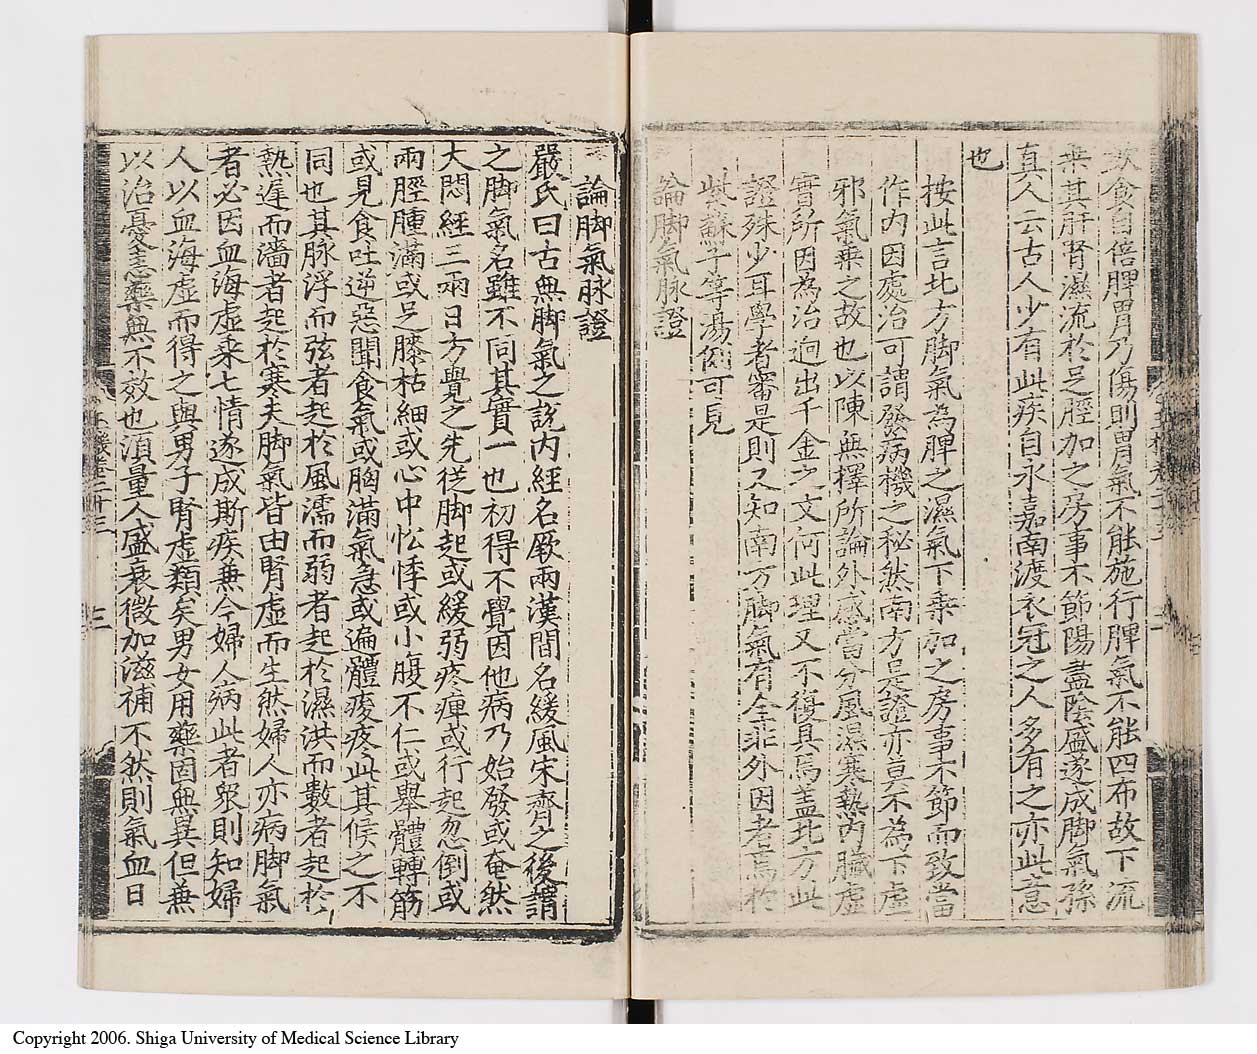 飲食自倍脾胃乃傷則胃氣不能施行脾氣不能四布故下流
乘其肝腎濕流於足脛加之房事不節陽盡陰盛遂成脚氣孫
真人云古人少有此疾自永嘉南渡衣冠之人多有之亦此意
也
按此言北方脚氣為脾之濕氣下乘加之房事不節而致當
作內因處治可謂發病機之秘然南方是證亦莫不為下虛
邪氣乘之故也以陳無擇所論外感當分風濕寒熱內臟虛
實所因為治逈出千金之文何此理又不復具焉盖北方此
證殊少耳學者審是則又知南方脚氣有全非外因者焉於
紫蘇子等湯例可見
論脚氣脉證
論脚氣脉證
嚴氏曰古無脚氣之說內經名厥兩漢間名緩風宋齊之後謂
之脚氣名雖不同其實一也初得不覺因他病乃始發或奄然
大悶經三兩日方覺之先從脚起或緩弱疼痺或行起忽倒或
兩脛腫滿或足膝枯細或心中忪悸或小腹不仁或舉體轉筋
或見食吐逆惡聞食氣或胸滿氣急或遍體痠疼此其候之不
同也其脉浮而弦者起於風濡而弱者起於濕洪而數者起於
熱遲而濇者起於寒夫脚氣皆由腎虛而生然婦人亦病脚氣
者必因血海虛乘七情遂成斯疾兼今婦人病此者衆則知婦
人以血海虛而得之與男子腎虛類矣男女用藥固無異但兼
以治憂恚藥無不效也須量人盛衰微加滋補不然則氣血日